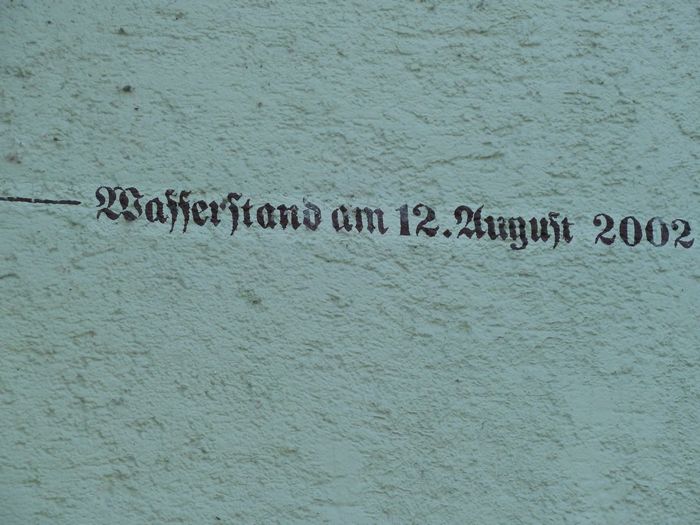 Waſſerſtand am 12. Auguſt 2002